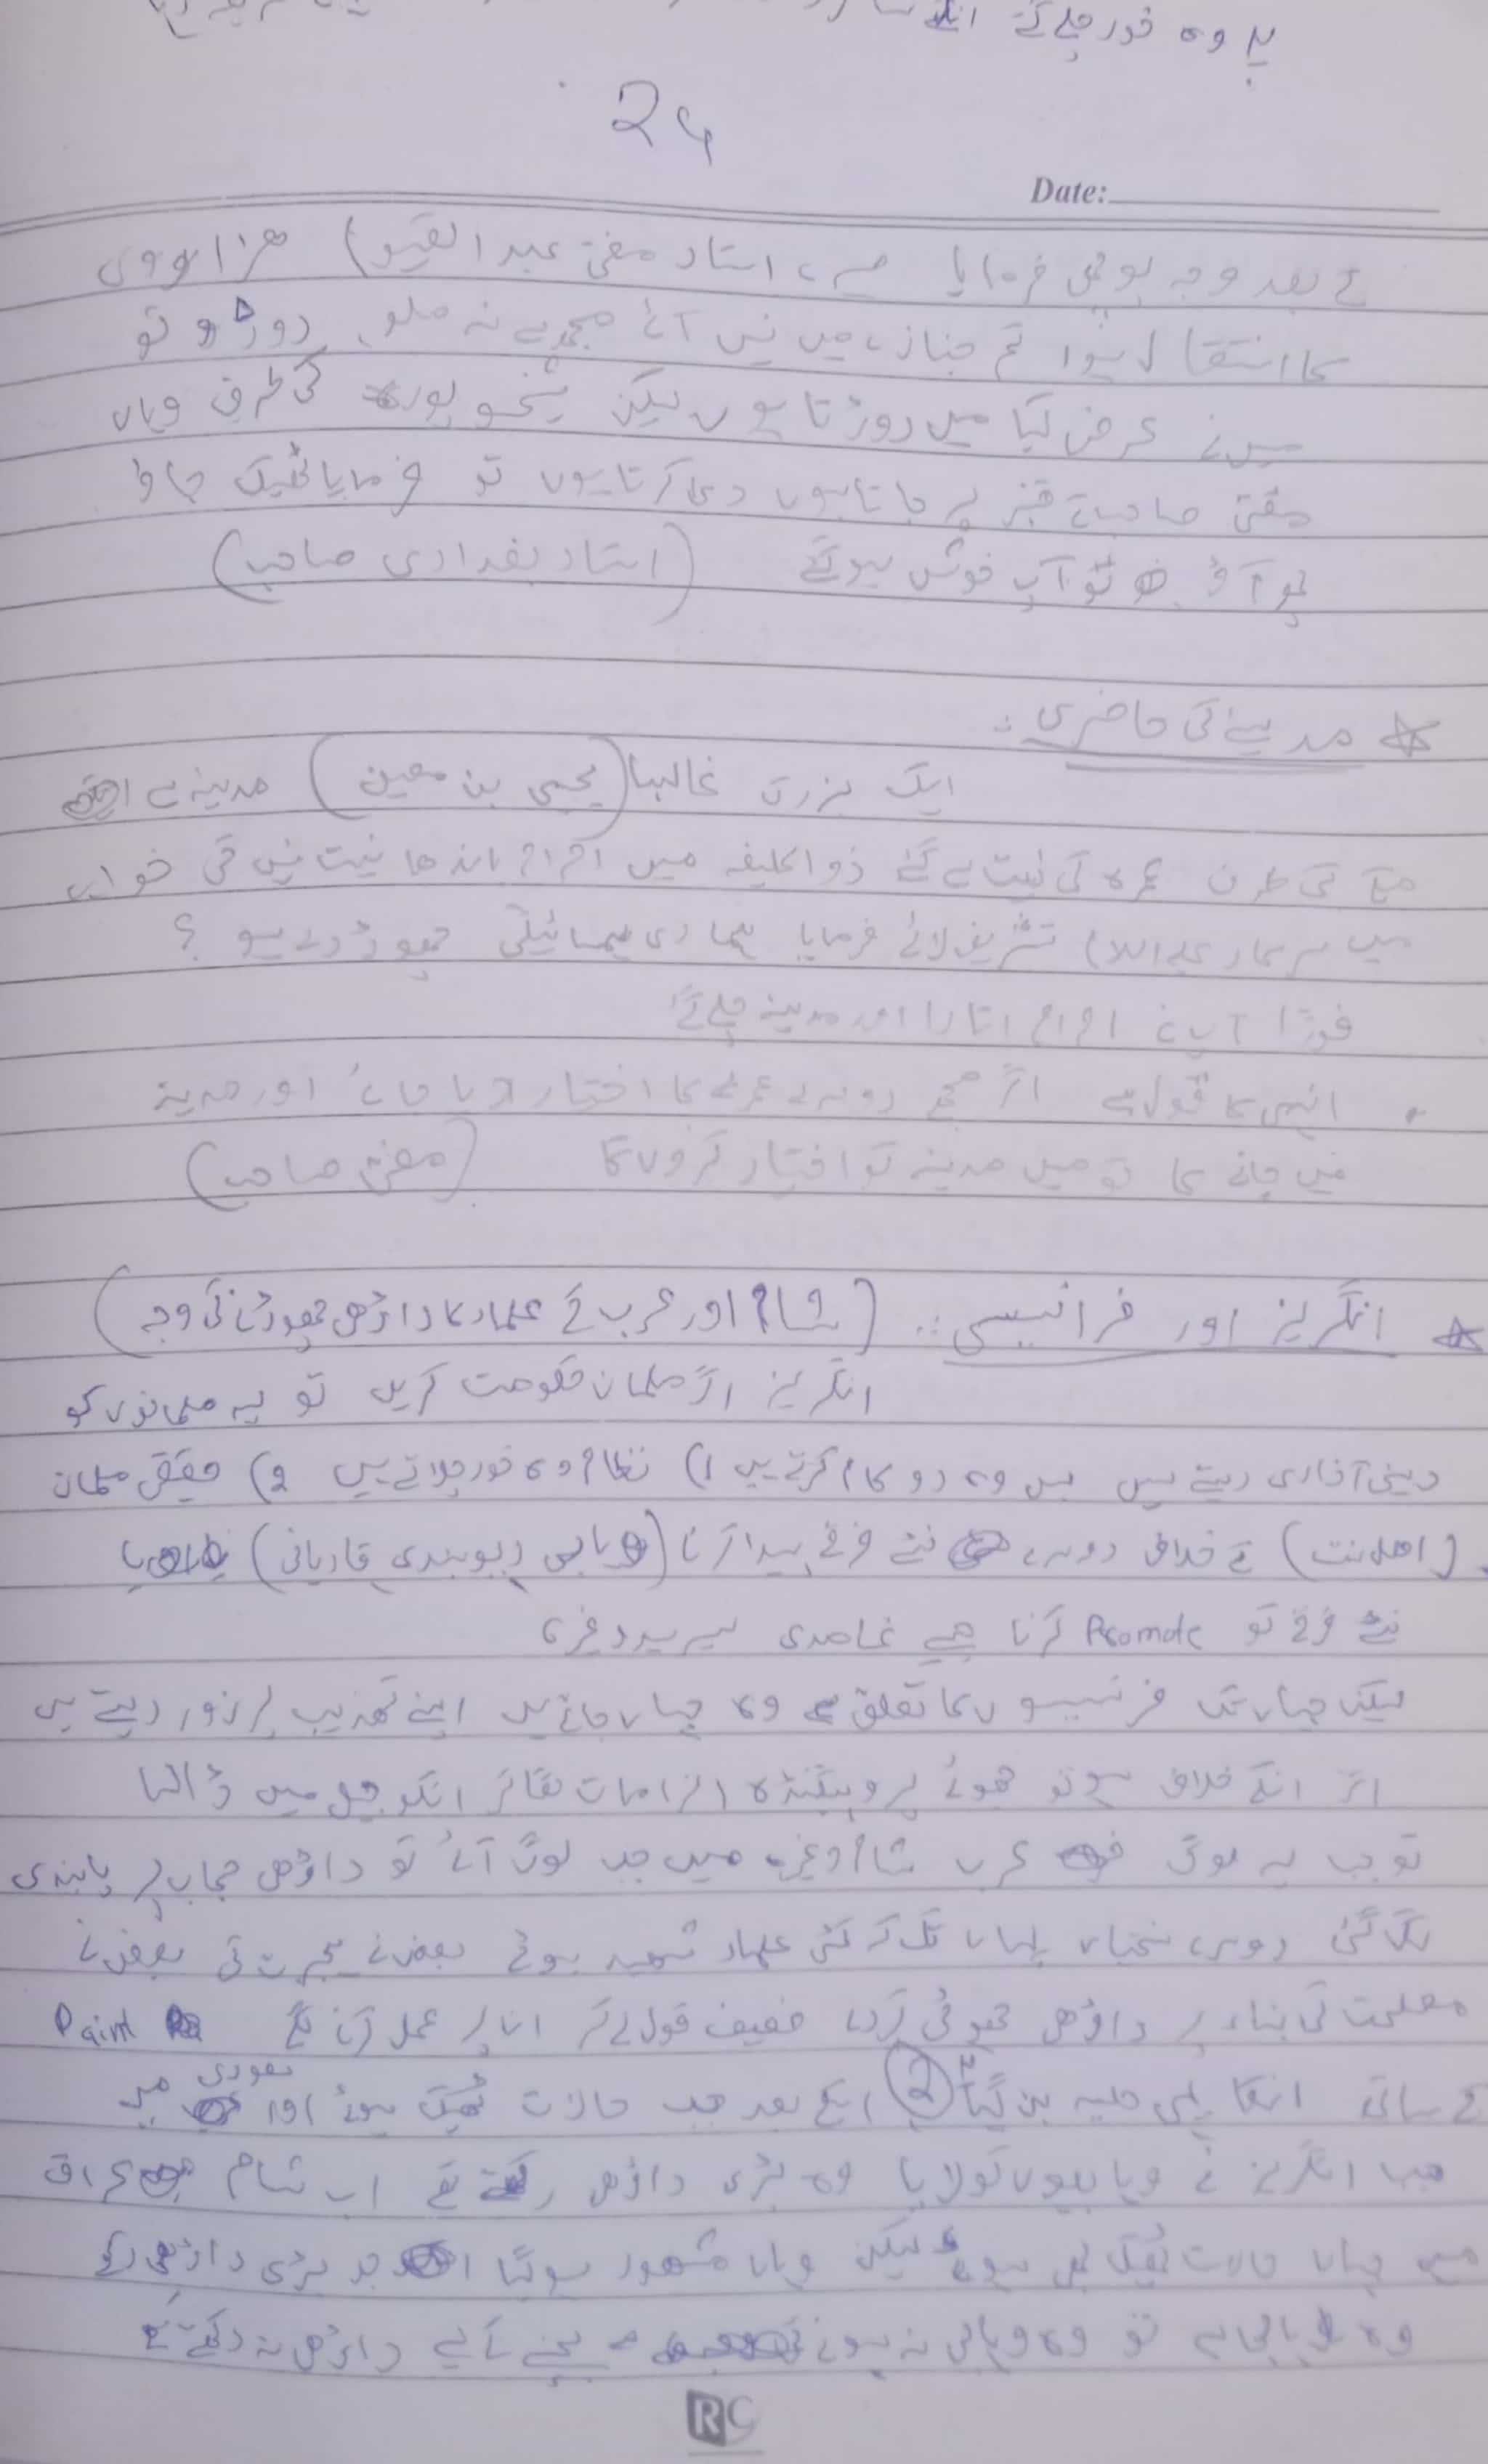 پر وہ خود چلے گئے
24
Date:
کے بعد وجہ پوچھی فرمایا استاد مفتی عبد القیوم ھزاروی
کا انتقال ہوا تم جنازے میں نہیں آئے مجھ سے نہ ملو دوڑو تو
میں نے عرض کیا میں دوڑتا ہوں لیکن شیخوپورہ کی طرف وہاں
مفتی صاحب کے قبر پر جاتا ہوں دعا کرتا ہوں تو فرمایا ٹھیک جاؤ
ہو آؤ تو آپ خوش ہو گئے (استاد بغدادی صاحب)
مدینے کی حاضری :
ایک بزرگ غالبا (یحیی بن معین) مدینہ سے
مکے کی طرف عمرہ کی نیت سے گئے ذوالحلیفہ میں احرام باندھا نیت نہیں کی خواب
میں سرکار علیہ السلام تشریف لائے فرمایا ہماری ہمسائیگی چھوڑ رہے ہو ؟
فوراً آپ نے احرام اتارا اور مدینہ چلے گئے
انہیں کا قول ہے اگر مجھے دوسرے عمرے کا اختیار دیا جائے اور مدینہ
میں جانے کا تو میں مدینہ کو اختیار کروں گا (مفتی صاحب)
انگریز اور فرانسیسی :. (شام اور عرب کے علماء کا داڑھی چھوڑنے کی وجہ)
انگریز اگر مسلمان حکومت کریں تو یہ مسلمانوں کو
دینی آزادی دیتے ہیں بس وہ دو کام کرتے ہیں 1) نظام وہ خود چلاتے ہیں 2) حقیقی مسلمان
(اھلسنت) کے خلاف دوسرے نئے فرقے پیدا کرنا (وہابی دیوبندی قادیانی) یا
نئے فرقے کو Promote کرنا جیسے غامدی سرسید وغیرہ
لیکن جہاں تک فرنسیسوں کا تعلق ہے وہ جہاں جاتے ہیں اپنے تھذیب پر زور دیتے ہیں
اگر انکے خلاف ہے تو جھوٹے پروپیگنڈہ الزامات لگا کر انکو جیل میں ڈالنا
تو جب یہ لوگ عرب شام وغیرہ میں جب لوگ آئے تو داڑھی حجاب پر پابندی
لگ گئی دوسری سختیاں یہاں تک کہ کئی علماء شھید ہوئے بعض نے ہجرت کی بعض نے
مصلحت کی بناء پر داڑھی چھوٹی کر دی ضعیف قول لے کر اس پر عمل کرنے لگے Paint
کے ساتھ انکا یہی حلیہ بن گیا 2) اسکے بعد جب حالات ٹھیک ہوئے اور سعودی میں
جب انگریز نے وہابیوں کو لایا وہ بڑی داڑھی رکھتے تھے اب شام عراق
میں جہاں حالات ٹھیک بھی ہوئے لیکن وہاں مشھور ہو گیا جو بڑی داڑھی رکھے
وہ وہابی ہے تو وہ وہابی نہ ہونے سے بچنے کے لیے داڑھی نہ رکھتے تھے
RC